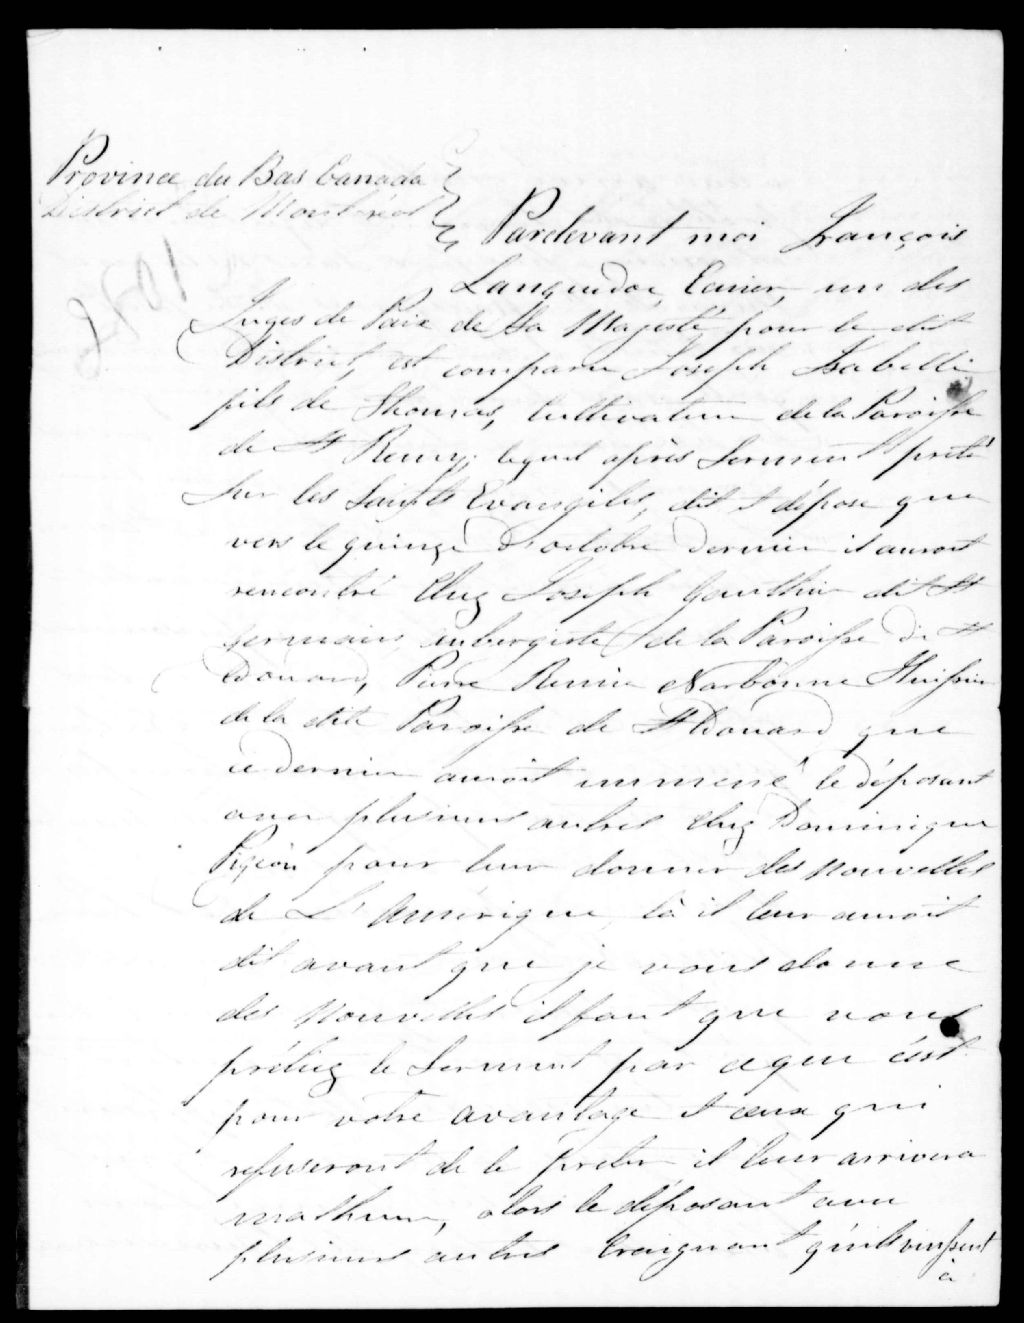 Province du Bas Canada
District de Montréal
1028
Pardevant moi François
Languedoc, Ecuier, un des
Juges de Paix de Sa Majesté pour le dit
District, est comparu Joseph Isabelle
fils de Thomas, Cultivateur de la Paroisse
de St Remy, lequel après Serment prêté
Sur les Saints Evangiles, dit & dépose que
vers le quinze d'octobre dernier il auroit
rencontré Chez Joseph Gauthier dit St
germain, aubergiste de la Paroisse de St
Edouard, Pierre Remie Narbonne Huissier
de la dite Paroisse de St Edouard que
ce dernier auroit emmené le déposant
avec plusieurs autres Chez Dominique
Pigeon pour leur donner des Nouvelles
de L'Amérique, là il leur auroit
dit avant que je vous donne
des Nouvelles il faut que vous
prétiez le Serment par ceque c'est
pour votre avantage & ceux qui
refuseront de le preter il leur arrivera
malheur, alors le déposant avec
plusieurs autres Craignant qu'ils vinssent
à